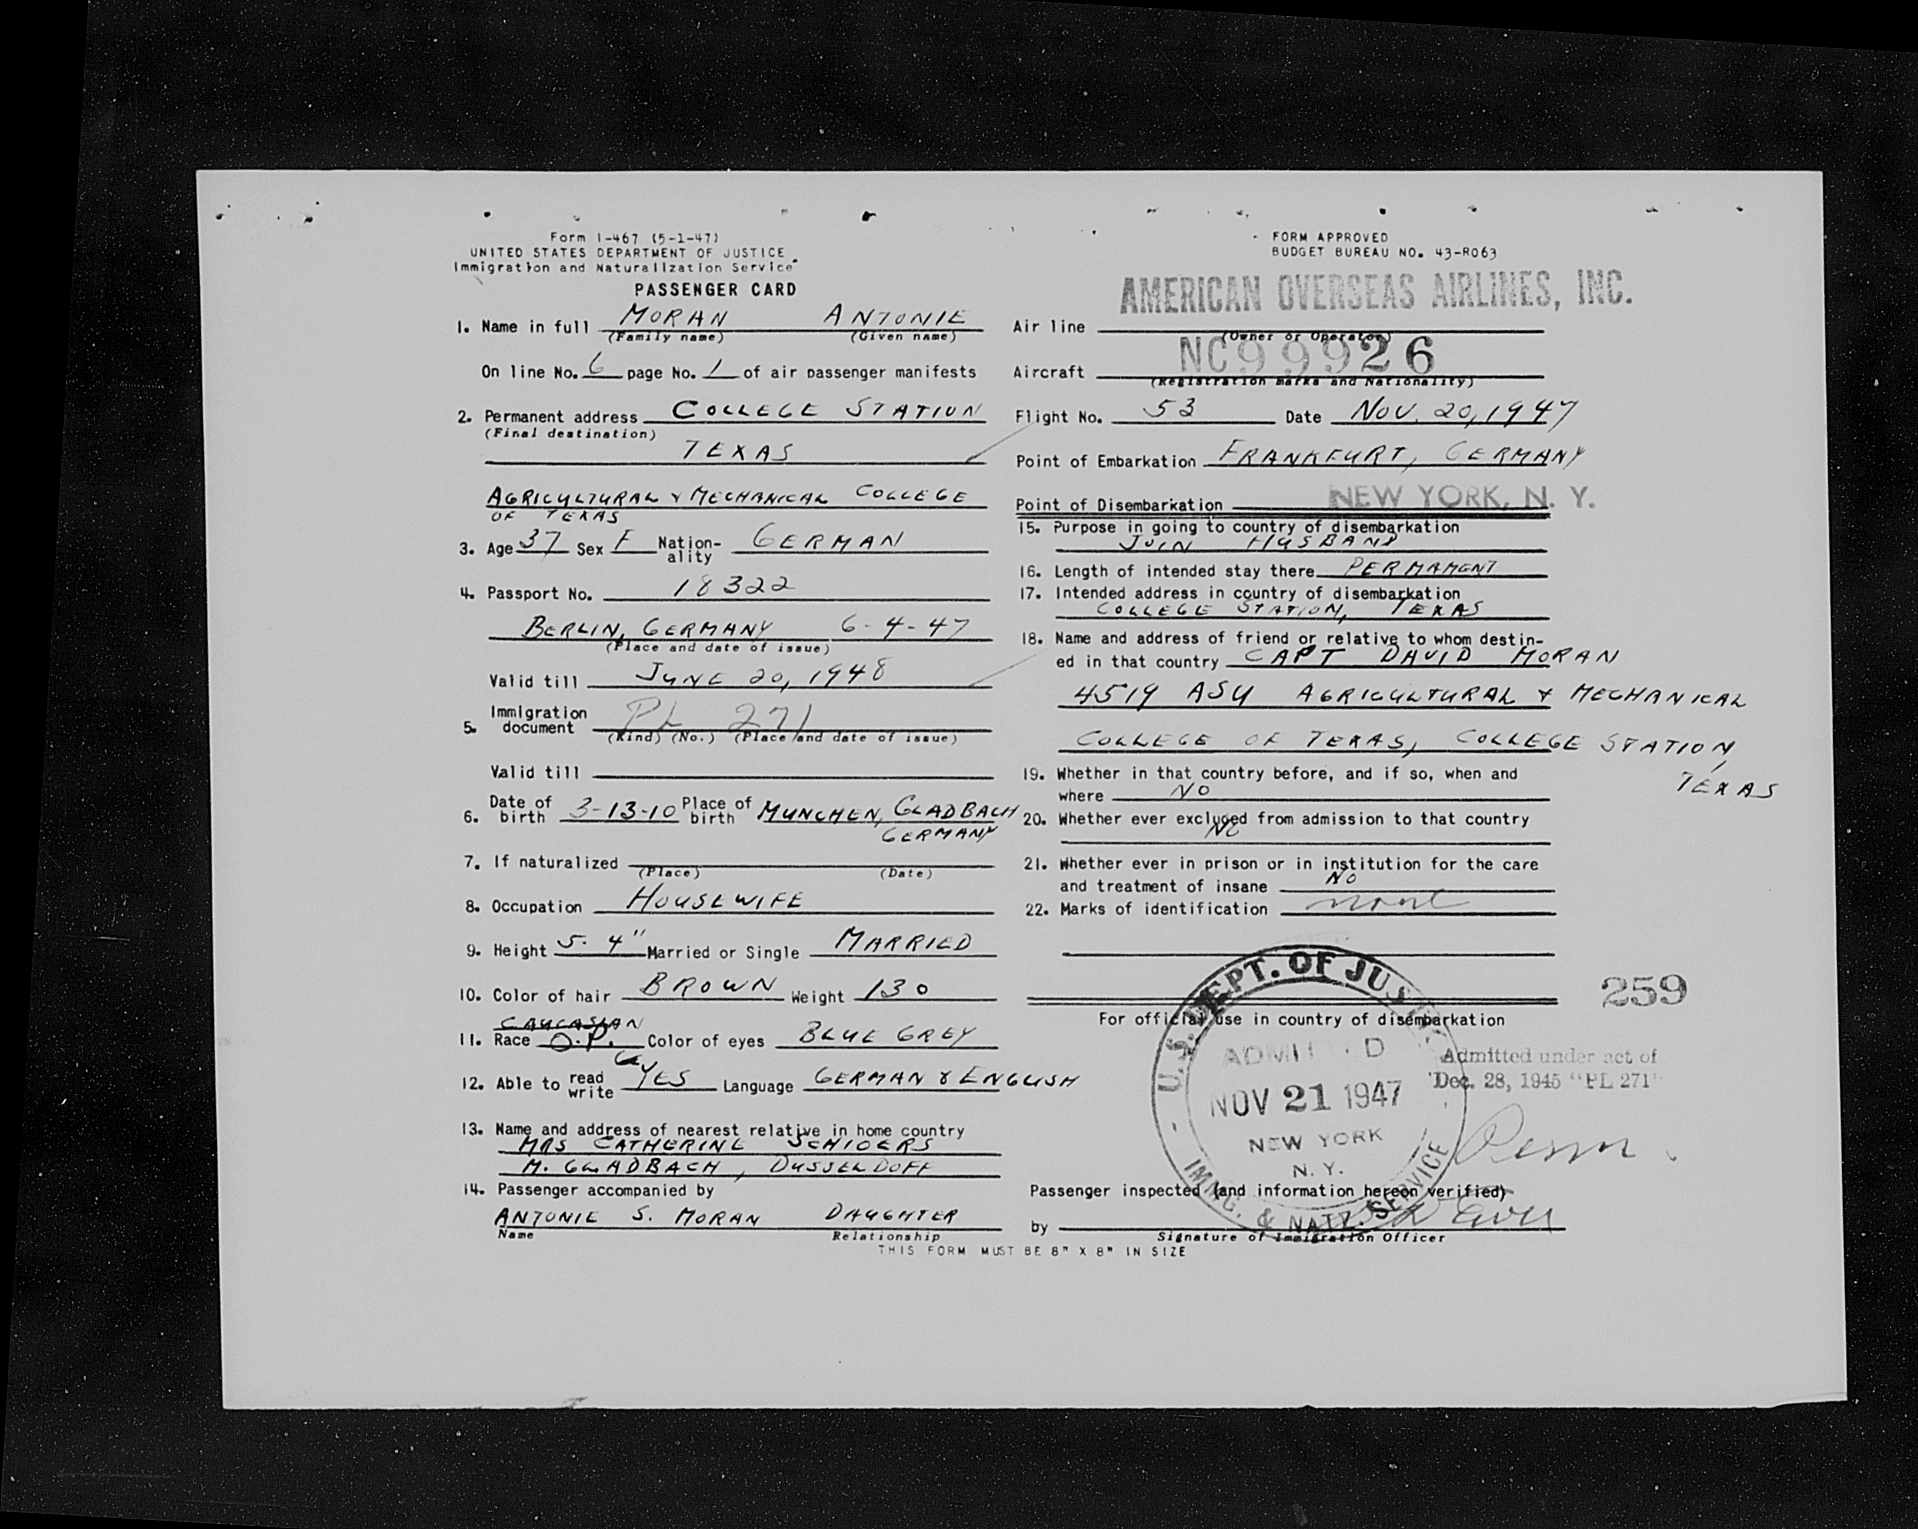 Form I-467 (5-1-47)
UNITED STATES DEPARTMENT OF JUSTICE
Immigration and Naturalization Service
PASSENGER CARD
1. Name in full MORAN ANTONIE
(Family name) (Given name)
On line No. 6 page No. 1 of air passenger manifests
2. Permanent address COLLEGE STATION
(Final destination)
TEXAS
AGRICULTURAL & MECHANICAL COLLEGE
OF TEXAS
3. Age 37 Sex F Nation-ality GERMAN
4. Passport No. 18322
BERLIN, GERMANY 6-4-47
(Place and date of issue)
Valid till JUNE 20, 1948
5. Immigration document PL 271
(Kind) (No.) (Place and date of issue)
Valid till
6. Date of birth 3-13-10 Place of birth MUNCHEN, GLADBACH
GERMANY
7. If naturalized
(Place) (Date)
8. Occupation HOUSEWIFE
9. Height 5. 4" Married or Single MARRIED
10. Color of hair BROWN Weight 130
CAUCASIAN
11. Race O.P. Color of eyes BLUE GREY
12. Able to read write YES Language GERMAN & ENGLISH
13. Name and address of nearest relative in home country
MRS CATHERINE SCHIOERS
M. GLADBACH, DUSSELDOFF
14. Passenger accompanied by
ANTONIE S. MORAN DAUGHTER
Name Relationship
THIS FORM MUST BE 8" X 8" IN SIZE
FORM APPROVED
BUDGET BUREAU NO. 43-R063
AMERICAN OVERSEAS AIRLINES, INC.
Air line
(Owner or Operator)
NC99926
Aircraft
(Registration marks and Nationality)
Flight No. 53 Date NOV. 20, 1947
Point of Embarkation FRANKFURT, GERMANY
Point of Disembarkation NEW YORK, N. Y.
15. Purpose in going to country of disembarkation
JOIN HUSBAND
16. Length of intended stay there PERMAMENT
17. Intended address in country of disembarkation
COLLEGE STATION, TEXAS
18. Name and address of friend or relative to whom destin-
ed in that country CAPT DAVID MORAN
4519 ASU AGRICULTURAL & MECHANICAL
COLLEGE OF TEXAS, COLLEGE STATION,
TEXAS
19. Whether in that country before, and if so, when and
where NO
20. Whether ever excluded from admission to that country
NO
21. Whether ever in prison or in institution for the care
and treatment of insane NO
22. Marks of identification none
259
For official use in country of disembarkation
U.S. DEPT. OF JUSTICE
ADMITTED
NOV 21 1947
NEW YORK
N. Y.
IMMG. & NATZ. SERVICE
Admitted under act of
Dec. 28, 1945 "PL 271"
Passenger inspected (and information hereon verified)
by
Signature of Immigration Officer